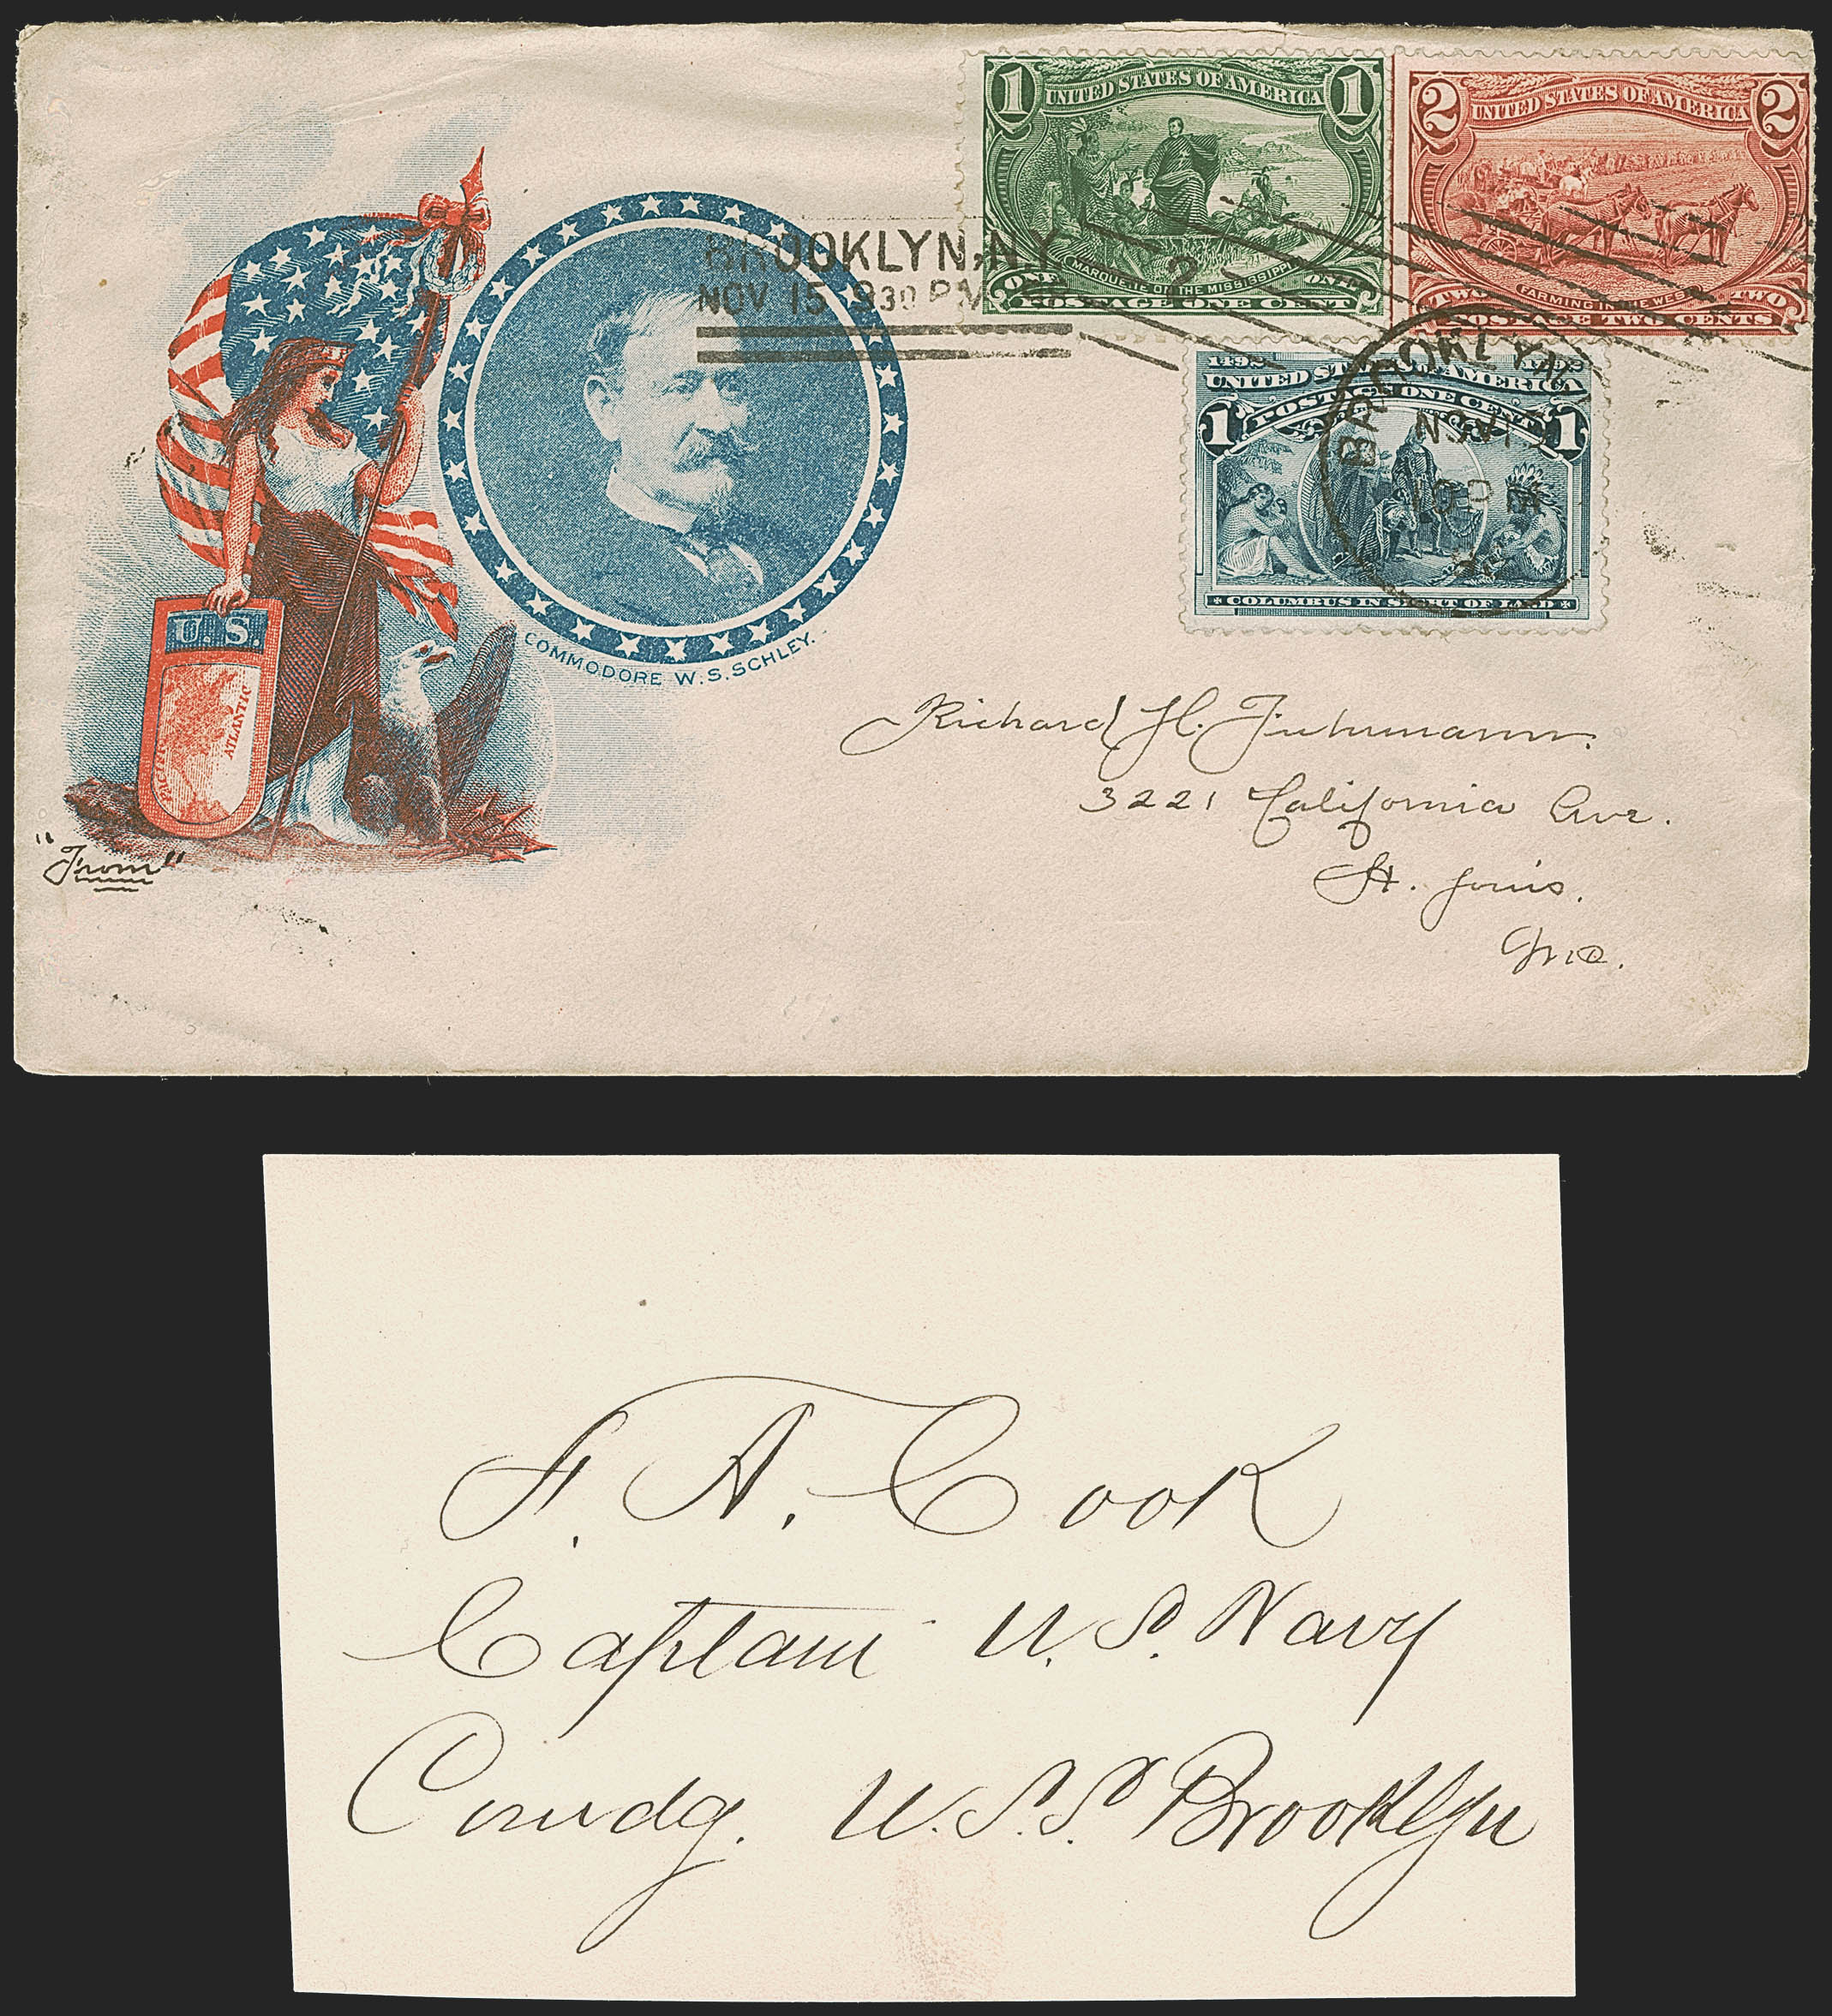 1 UNITED STATES OF AMERICA 1
MARQUETTE ON THE MISSISSIPPI
ONE ONE
POSTAGE ONE CENT
2 UNITED STATES OF AMERICA 2
FARMING IN THE WEST
TWO TWO
POSTAGE TWO CENTS
BROOKLYN, N.Y.
NOV 15 930 PM
2
1492
UNITED STATES OF AMERICA
POSTAGE ONE CENT
1 1
COLUMBUS IN SIGHT OF LAND
BROOKLYN
NOV
U.S.
PACIFIC
ATLANTIC
COMMODORE W. S. SCHLEY.
"From"
Richard H. Fuhrmann.
3221 California Ave.
St. Louis.
Mo.
F. A. Cook
Captain U. S. Navy
Comdg. U.S.S. Brooklyn